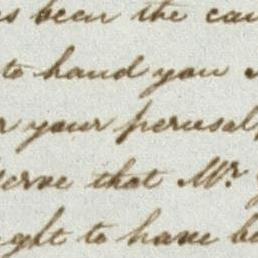 s been the cau
to hand you
r your perusal,
serve that Mr.
ught to have be